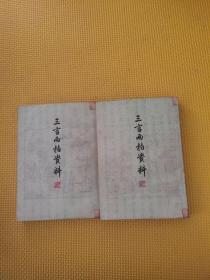 三言两拍资料
三言两拍资料